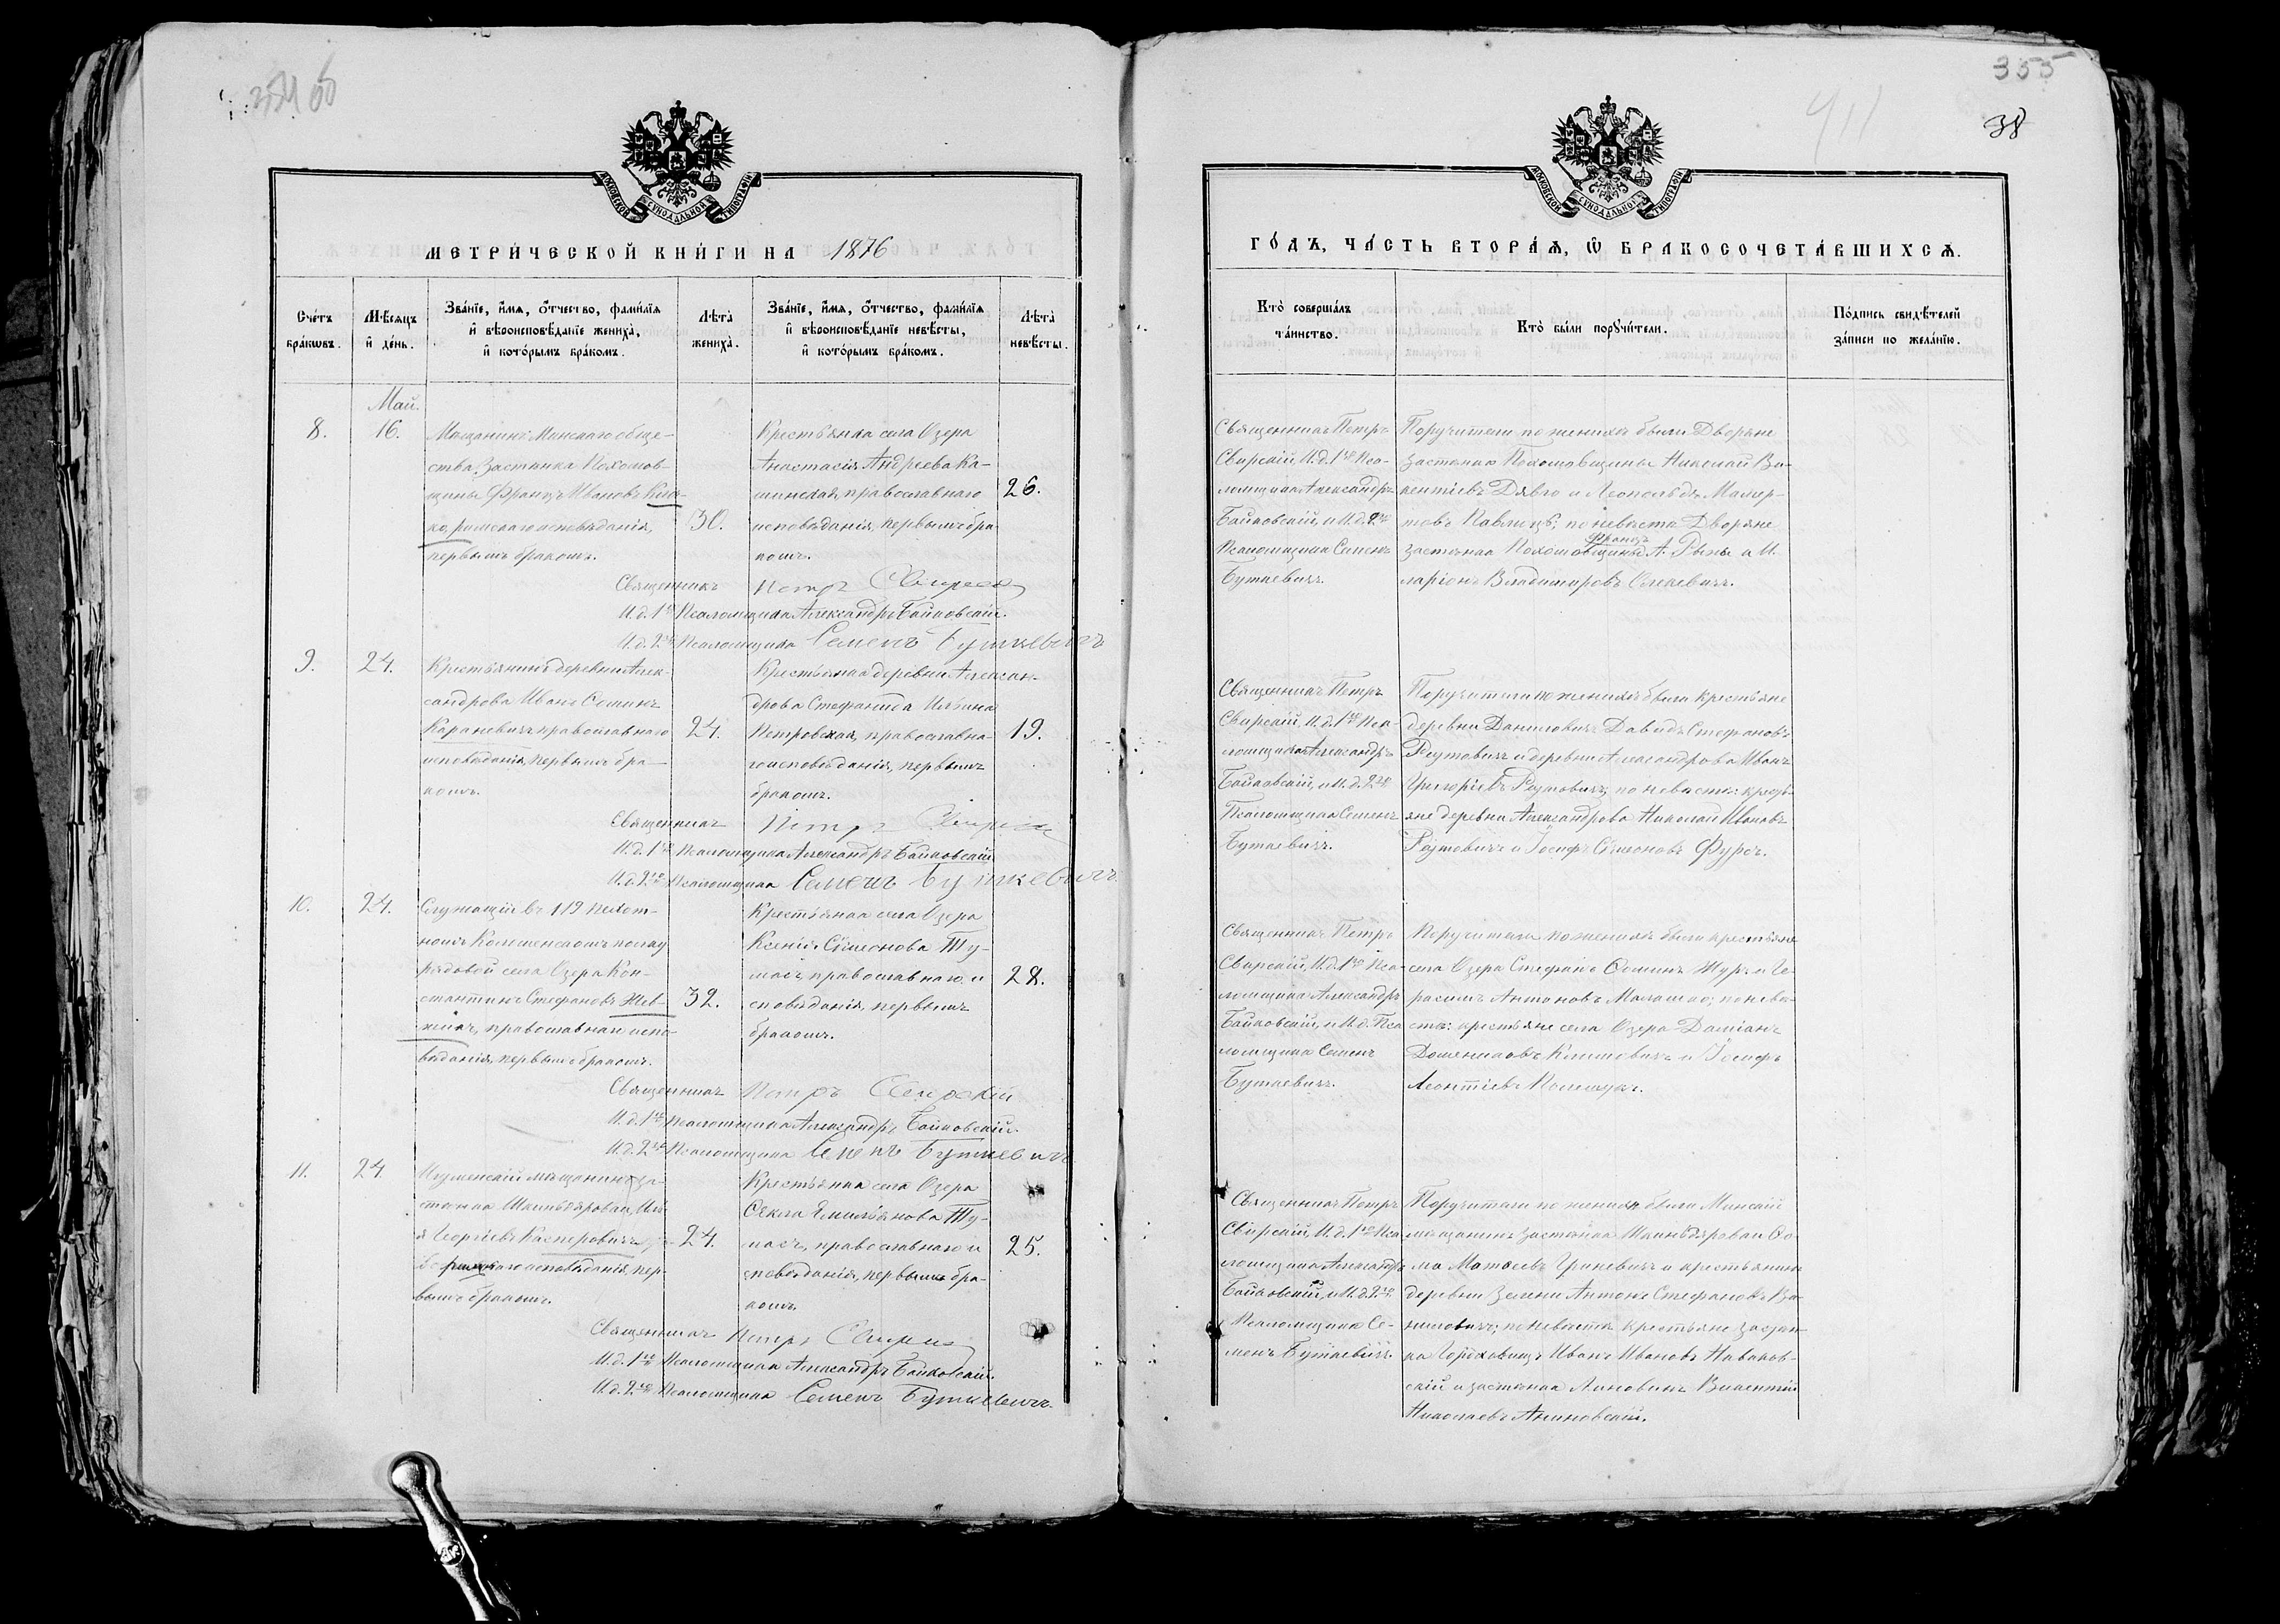 355
38
411
МОСКОВСКОЙ СУНОДАЛЬНОЙ ТИПОГРАФІИ
МЕТРИ́ЧЕСКОЙ КНИ́ГИ НА 1876
Сче́тъ бра́кѡвъ.
Мѣ́сяцъ и҆ де́нь.
Зва́нїе, и҆́мѧ, ѻ҆́тчество, фами́лїѧ
и҆ вѣроисповѣ́данїе жениха̀,
и҆ кото́рымъ бра́комъ.
Лѣ́та жениха̀.
Зва́нїе, и҆́мѧ, ѻ҆́тчество, фами́лїѧ
и҆ вѣроисповѣ́данїе невѣ́сты,
и҆ кото́рымъ бра́комъ.
Лѣ́та невѣ́сты.
Май.
8.
16.
Мѣщанинъ Минскаго обще-
ства Застѣнка Похомов-
щины Францъ Ивановъ
римскаго исповѣданія,
первымъ бракомъ.
30.
Крестьянка села Озера
Анастасія Андреева Ка-
шинская, православнаго
исповѣданія, первымъ бра-
комъ.
26.
Священникъ Петръ Свирскій
И.д. 1го Псаломщика Александръ Байковскій.
И.д. 2го Псаломщика Семенъ Буткевичъ
9.
24.
Крестьянинъ деревни Алек-
сандрова Иванъ Ѳоминъ
Караневичъ православнаго
исповѣданія, первымъ бра-
комъ.
24.
Крестьянка деревни Алексан-
дрова Стефанида Ильина
Петровская, православна-
го исповѣданія, первымъ
бракомъ.
19.
Священникъ Петръ Свирскій
И.д. 1го Псаломщика Александръ Байковскій
И.д. 2го Псаломщика Семенъ Буткевичъ
10.
24.
Служащій въ 119 пѣхот-
номъ Коломенскомъ полку
рядовой села Озера Кон-
стантинъ Стефановъ
православнаго испо-
вѣданія, первымъ бракомъ.
32.
Крестьянка села Озера
Ксенія Сѵмеонова Ту-
масъ, православнаго и
сповѣданія, первымъ
бракомъ.
28.
Священникъ Петръ Свирскій
И.д. 1го Псаломщика Александръ Байковскій.
И.д. 2го Псаломщика Семенъ Буткевичъ
11.
24.
Игуменскій мѣщанинъ за-
стѣнка Илі
я Георгіевъ Касперовичъ
исповѣданія, пер-
вымъ бракомъ.
24.
Крестьянка села Озера
Ѳекла Емиліанова Ту-
масъ, православнаго и
споведанія, первымъ бра-
комъ.
25.
Священникъ Петръ Свирскій
И.д. 1го Псаломщика Александръ Байковскій.
И.д. 2го Псаломщика Семенъ Буткевичъ.
МОСКОВСКОЙ СУНОДАЛЬНОЙ ТИПОГРАФІИ
ГО́ДЪ, ЧА́СТЬ ВТОРА́Ѧ, Ѡ҆ БРАКОСОЧЕТА́ВШИХСѦ.
Кто̀ соверша́лъ та́инство.
Кто̀ бы́ли порꙋчи́тели.
По́дпись свидѣ́телей за́писи по жела́нїю.
Священникъ Петръ
Свирскій, И.д. 1го Пса-
ломщика Александръ
Байковскій, и И.д. 2го
Псаломщика Семенъ
Буткевичъ.
Поручители по женихѣ были: Дворяне
застѣнка Похомовщины Николай Ви-
кентіевъ и Леопольдъ
по невѣстѣ: Дворяне
Францъ
застѣнка Похомовщины А. и И-
ларіонъ Владиміровъ
Священникъ Петръ
Свирскій, И.д. 1го Пса-
ломщика Александръ
Байковскій, и И.д. 2го
Псаломщика Семенъ
Буткевичъ.
Поручители по женихѣ были крестьяне
деревни Даниловичъ Давидъ Стефановъ
Реутовичъ и деревни Александрова Иванъ
Григоріевъ Реутовичъ; по невѣстѣ: кресть-
яне деревни Александрова Николай Ивановъ
Реутовичъ и Іосифъ Сѵмеоновъ Фурсъ.
Священникъ Петръ
Свирскій, И.д. 1го Пса-
ломщика Александръ
Байковскій, и И.д. Пса
ломщика Семенъ
Буткевичъ.
Поручители по женихѣ были крестьяне
села Озера Стефанъ Ѳоминъ Журъ и Ге-
расимъ Антоновъ Малашко; по невѣ-
стѣ: крестьяне села Озера Даміанъ
Доментіановъ Климовичъ и Іосифъ
Леонтіевъ Полещукъ.
Священникъ Петръ
Свирскій, И.д. 1го Пса
ломщика Александръ
Байковскій, и И.д. 2го.
Псаломщика Се-
менъ Буткевичъ.
Поручители по женихѣ были Минскій
мѣщанинъ застѣнка Ѳо-
ма Матѳеевъ Гриневичъ и крестьянинъ
деревни Зелени Антонъ Стефановъ Ва-
ниловичъ; по невѣстѣ крестьяне застѣн-
ка Иванъ Ивановъ
скій и застѣнка Викентій
Николаевъ